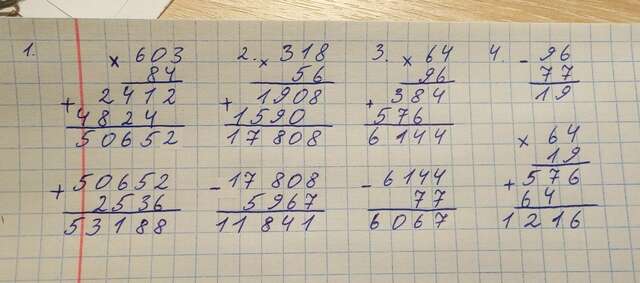 1. × 603
84
+ 2412
4824
50652
+ 50652
2536
53188
2. × 318
56
+ 1908
1590
17808
- 17808
5967
11841
3. × 64
96
+ 384
576
6144
- 6144
77
6067
4. - 96
77
19
× 64
19
+ 576
64
1216